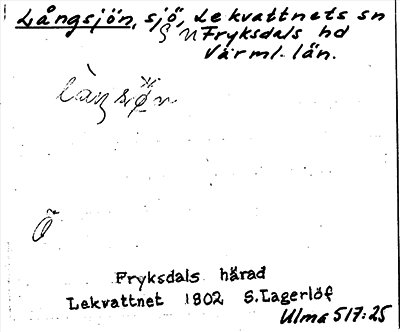 Långsjön, sjö, Lekvattnets sn
Fryksdals hd
Värml. län.
Fryksdals härad
Lekvattnet 1802 S. Lagerlöf
Ulma 517:25